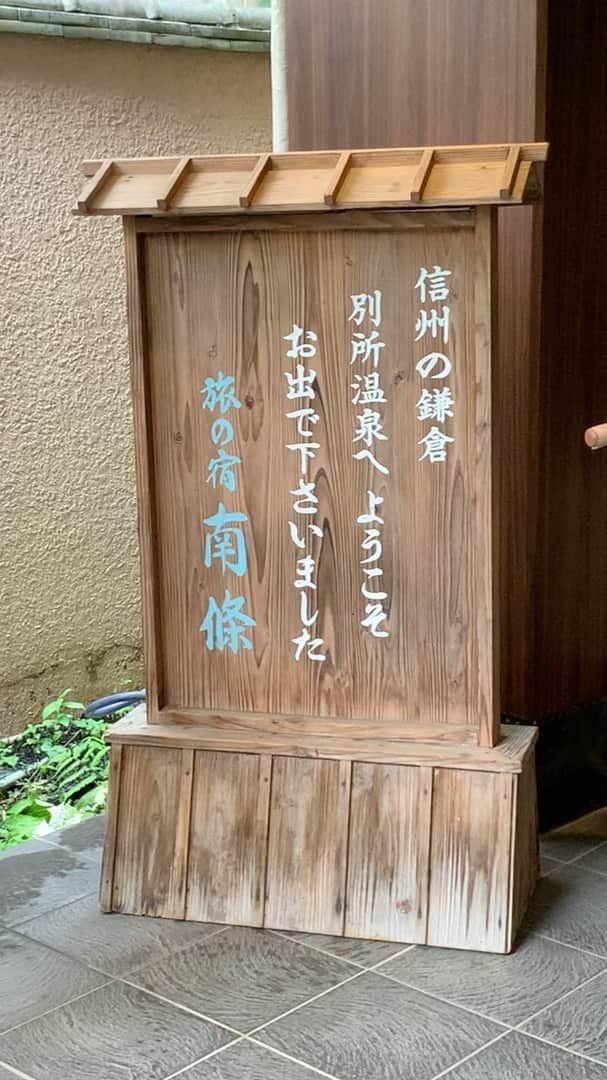 信州の鎌倉
別所温泉へようこそ
お出で下さいました
旅の宿 南條